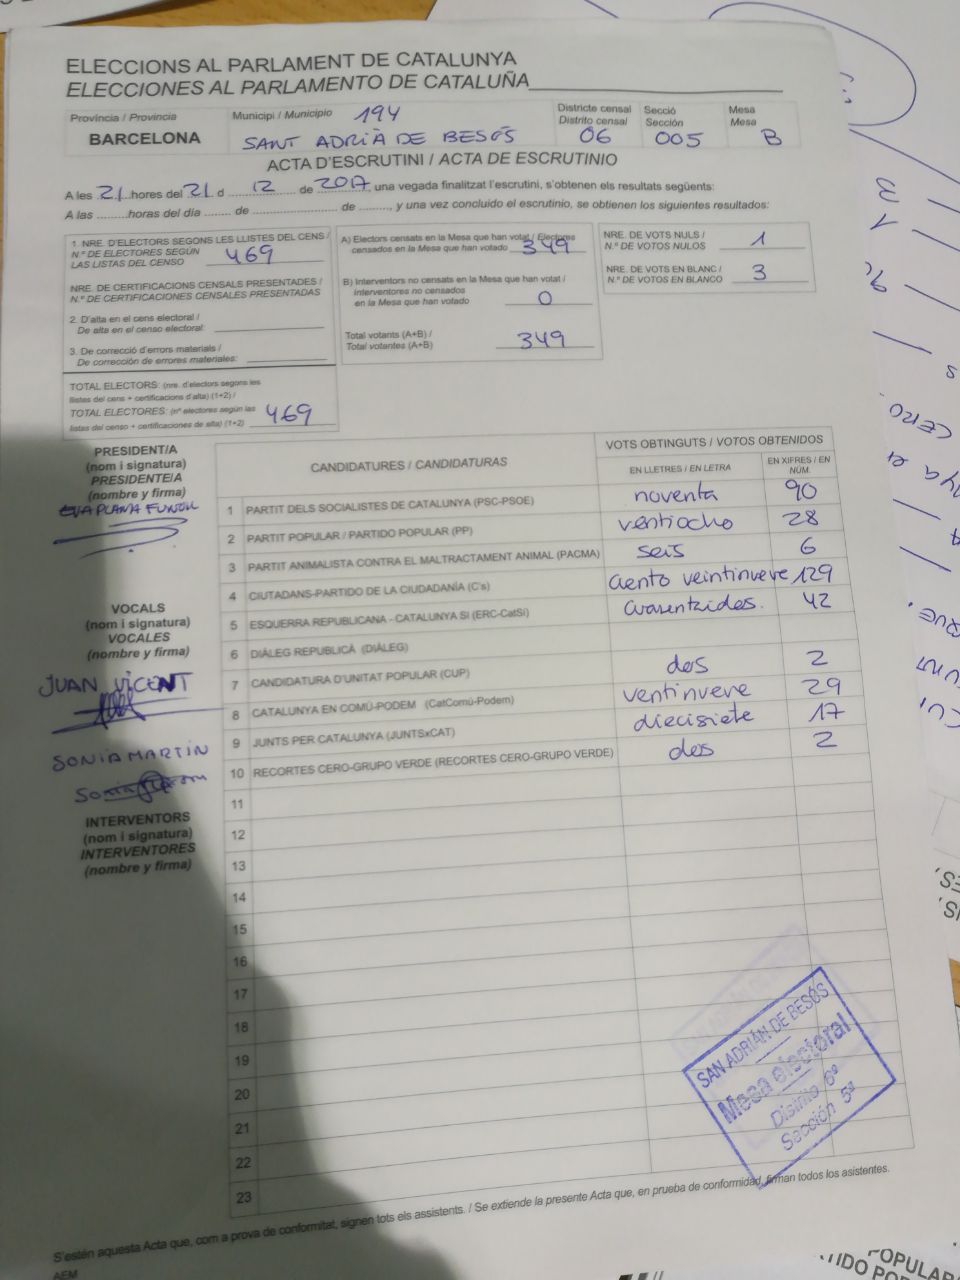 ELECCIONS AL PARLAMENT DE CATALUNYA
ELECCIONES AL PARLAMENTO DE CATALUÑA
Província / Provincia
BARCELONA
Municipi / Municipio 194
SANT ADRIÀ DE BESÓS
Districte censal
Distrito censal
06
Secció
Sección
005
Mesa
Mesa
B
ACTA D'ESCRUTINI / ACTA DE ESCRUTINIO
A les 21 hores del 21 d 12 de 2017, una vegada finalitzat l'escrutini, s'obtenen els resultats següents:
A las ........horas del día ....... de ...................... de ........, y una vez concluido el escrutinio, se obtienen los siguientes resultados:
1. NRE. D'ELECTORS SEGONS LES LLISTES DEL CENS /
N.º DE ELECTORES SEGÚN
LAS LISTAS DEL CENSO 469
NRE. DE CERTIFICACIONS CENSALS PRESENTADES /
N.º DE CERTIFICACIONES CENSALES PRESENTADAS
2. D'alta en el cens electoral /
De alta en el censo electoral:
3. De correcció d'errors materials /
De corrección de errores materiales:
TOTAL ELECTORS: (nre. d'electors segons les
llistes del cens + certificacions d'alta) (1+2) /
TOTAL ELECTORES: (nº electores según las
listas del censo + certificaciones de alta) (1+2) 469
A) Electors censats en la Mesa que han votat / Electores
censados en la Mesa que han votado 349
B) Interventors no censats en la Mesa que han votat /
Interventores no censados
en la Mesa que han votado 0
Total votants (A+B) /
Total votantes (A+B) 349
NRE. DE VOTS NULS /
N.º DE VOTOS NULOS 1
NRE. DE VOTS EN BLANC /
N.º DE VOTOS EN BLANCO 3
PRESIDENT/A
(nom i signatura)
PRESIDENTE/A
(nombre y firma)
EVA PLANA
VOCALS
(nom i signatura)
VOCALES
(nombre y firma)
JUAN VICENT
SONIA MARTIN
INTERVENTORS
(nom i signatura)
INTERVENTORES
(nombre y firma)
CANDIDATURES / CANDIDATURAS
VOTS OBTINGUTS / VOTOS OBTENIDOS
EN LLETRES / EN LETRA
EN XIFRES / EN NÚM.
1 PARTIT DELS SOCIALISTES DE CATALUNYA (PSC-PSOE) noventa 90
2 PARTIT POPULAR / PARTIDO POPULAR (PP) ventiocho 28
3 PARTIT ANIMALISTA CONTRA EL MALTRACTAMENT ANIMAL (PACMA) seis 6
4 CIUTADANS-PARTIDO DE LA CIUDADANÍA (C's) ciento veintinueve 129
5 ESQUERRA REPUBLICANA - CATALUNYA SI (ERC-CatSi) cuarentaidos. 42
6 DIÀLEG REPUBLICÀ (DIÀLEG)
7 CANDIDATURA D'UNITAT POPULAR (CUP) dos 2
8 CATALUNYA EN COMÚ-PODEM (CatComú-Podem) ventinueve 29
9 JUNTS PER CATALUNYA (JUNTSxCAT) diecisiete 17
10 RECORTES CERO-GRUPO VERDE (RECORTES CERO-GRUPO VERDE) dos 2
11
12
13
14
15
16
17
18
19
20
21
22
23
SAN ADRIÁN DE BESÓS
Mesa electoral
Distrito 6º
Sección 5ª
S'estén aquesta Acta que, com a prova de conformitat, signen tots els assistents. / Se extiende la presente Acta que, en prueba de conformidad, firman todos los asistentes.
AEM
CERO